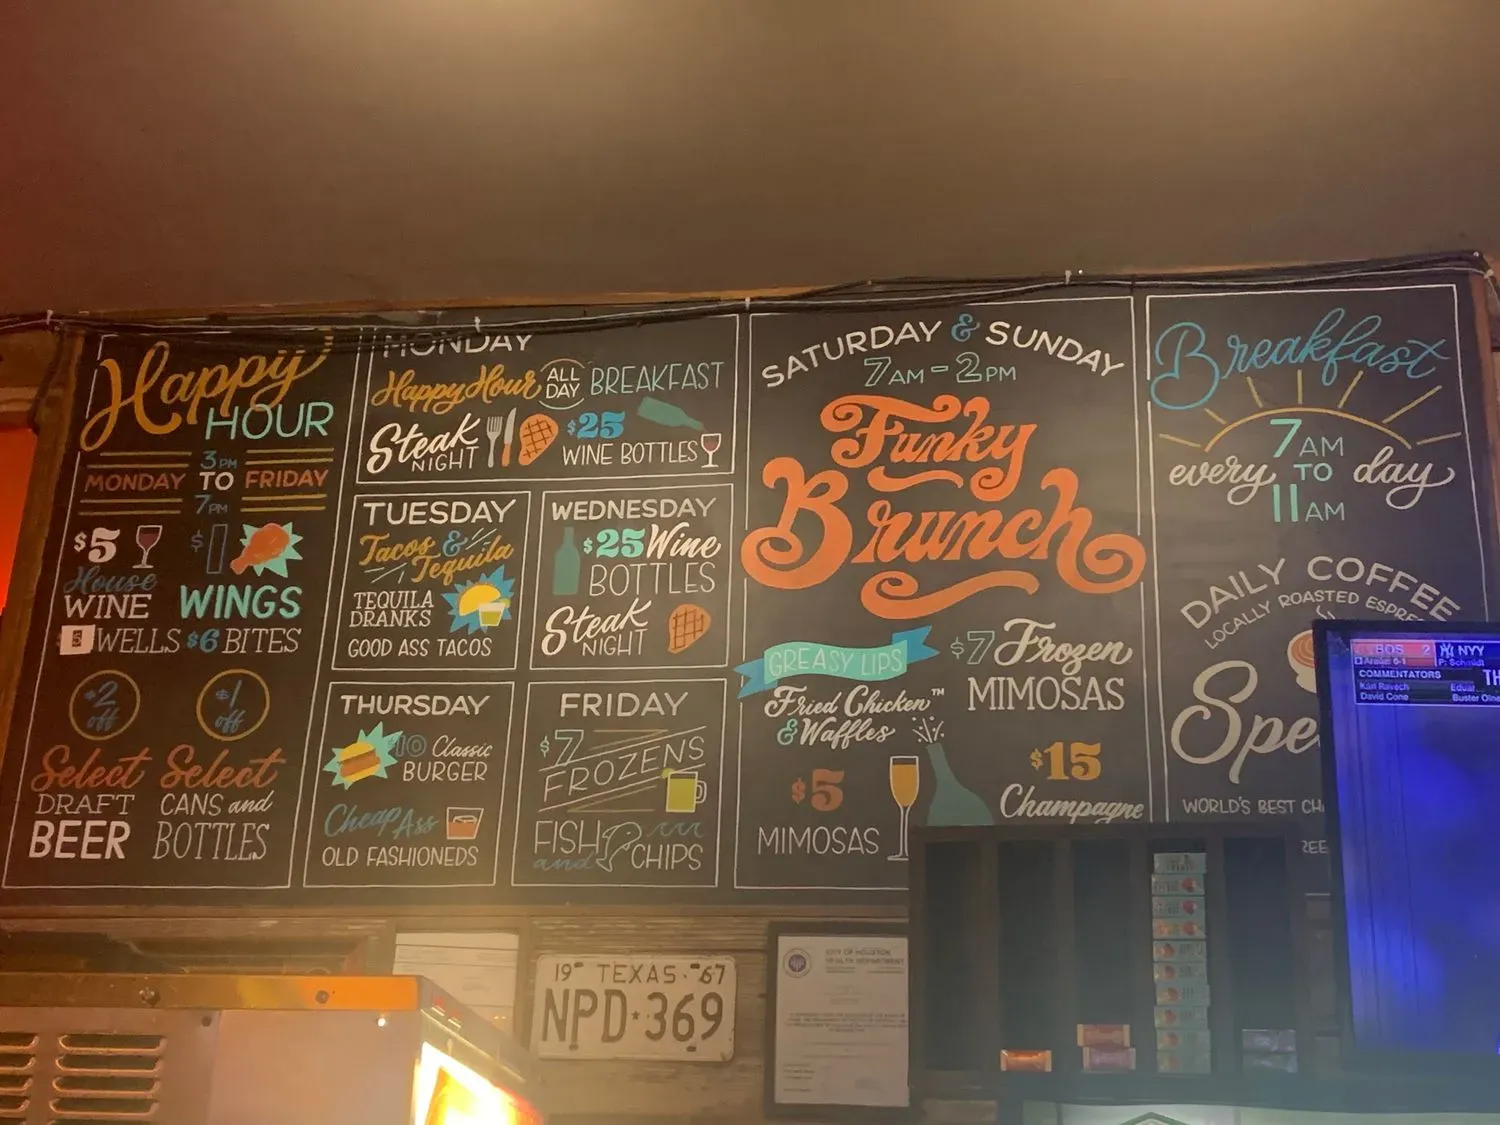 Happy
HOUR
3PM
MONDAY TO FRIDAY
7PM
$5
House
WINE
$1
WINGS
$5 WELLS $6 BITES
$2
off
Select
DRAFT
BEER
$1
off
Select
CANS and
BOTTLES
MONDAY
Happy Hour ALL DAY BREAKFAST
Steak
NIGHT
$25
WINE BOTTLES
TUESDAY
Tacos &
Tequila
TEQUILA
DRANKS
GOOD ASS TACOS
WEDNESDAY
$25 Wine
BOTTLES
Steak
NIGHT
THURSDAY
$10 Classic
BURGER
Cheap Ass
OLD FASHIONEDS
FRIDAY
$7
FROZENS
FISH
and CHIPS
SATURDAY & SUNDAY
7AM - 2PM
Funky
Brunch
GREASY LIPS
Fried Chicken™
& Waffles
$5
MIMOSAS
$7 Frozen
MIMOSAS
$15
Champagne
Breakfast
7AM
every TO day
11AM
DAILY COFFEE
LOCALLY ROASTED ESPRE
Spe
WORLD'S BEST CH
REE
BOS 2 NYY
P: Schmidt
COMMENTATORS
Karl Ravech
David Cone
Eduar
Buster Olne
TH
19 TEXAS 67
NPD★369
CITY OF HOUSTON
HEALTH DEPARTMENT